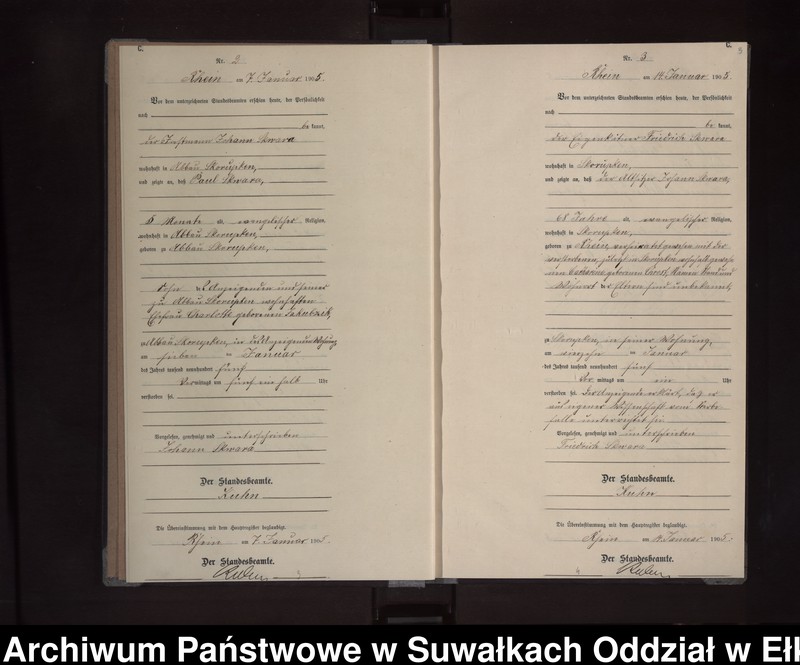 C.
Nr. 2
Rhein am 7. Januar 1905.
Vor dem unterzeichneten Standesbeamten erschien heute, der Persönlichkeit
nach
be kannt,
der Instmann Johann Skwara
wohnhaft in Abbau Skorupken,
und zeigte an, daß Paul Skwara,
5 Monate alt, evangelischer Religion,
wohnhaft in Abbau Skorupken,
geboren zu Abbau Skorupken,
Sohn des Anzeigenden und seiner
zu Abbau Skorupken wohnhaften
Ehefrau Charlotte geborenen
zu Abbau Skorupken, in des Anzeigenden Wohnung
am sieben ten Januar
des Jahres tausend neunhundert fünf
Vor mittags um fünf ein halb Uhr
verstorben sei.
Vorgelesen, genehmigt und unterschrieben
Johann Skwara
Der Standesbeamte.
Kuhn
Die Übereinstimmung mit dem Hauptregister beglaubigt.
Rhein am 7. Januar 1905.
Der Standesbeamte.
Kuhn
C.
3
Nr. 3
Rhein am 14. Januar 1905.
Vor dem unterzeichneten Standesbeamten erschien heute, der Persönlichkeit
nach
be kannt,
der Eigenkätner Friedrich Skwara
wohnhaft in Skorupken,
und zeigte an, daß der Altsitzer Johann Skwara,
68 Jahre alt, evangelischer Religion,
wohnhaft in Skorupken,
geboren zu verheiratet gewesen mit der
verstorbenen, zuletzt in Skorupken wohnhaft gewese
nen geborenen Namen Stand und
Wohnort der Eltern sind unbekannt,
zu Skorupken, in seiner Wohnung,
am ten Januar
des Jahres tausend neunhundert fünf
Vor mittags um ein Uhr
verstorben sei. Der Anzeigende erklärt, daß er
aus eigener Wissenschaft vom Sterbe
falle unterrichtet sei
Vorgelesen, genehmigt und unterschrieben
Friedrich Skwara
Der Standesbeamte.
Kuhn
Die Übereinstimmung mit dem Hauptregister beglaubigt.
Rhein am 14. Januar 1905.
Der Standesbeamte.
Kuhn
Archiwum Państwowe w Suwałkach Oddział w Ełk